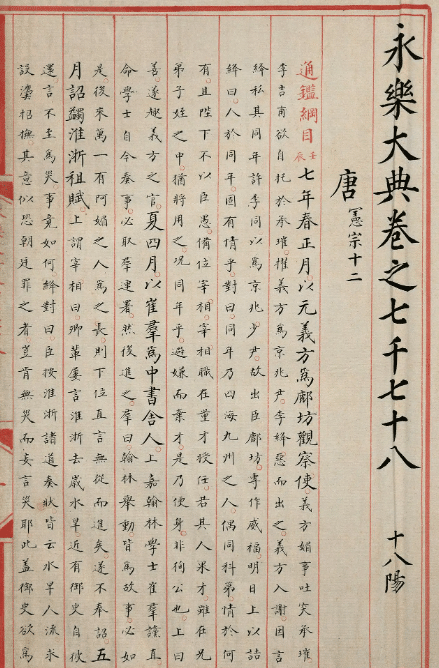 永樂大典卷之七千七十八 十八陽
唐 憲宗十二
通鑑綱目 壬辰 七年春正月以元義方為鄜坊觀察使義方媚事吐突承璀
李吉甫欲自托於承璀擢義方為京兆尹李絳惡而出之義方入謝因言
絳私其同年許季同以為京兆少尹故出臣鄜坊專作威福明日上以詰
絳曰人於同年固有情乎對曰同年乃四海九州之人偶同科第情於何
有且陛下不以臣愚備位宰相宰相職在量才授任若其人果才雖在兄
弟子姪之中猶將用之况同年乎避嫌而棄才是乃便身非徇公也上曰
善遂趣義方之官夏四月以崔羣為中書舍人上嘉翰林學士崔羣讜直
命學士自今奏事必取羣連署然後進之羣曰翰林舉動皆為故事必如
是後來萬一有阿媚之人為之長則下位直言無從而進矣遂不奉詔五
月詔蠲淮浙租賦上謂宰相曰卿輩屢言淮浙去歲水旱近有御史自彼
還言不至為災事竟如何絳對曰臣按淮浙諸道奏狀皆云水旱人流求
設法招撫其意似恐朝廷罪之者豈肯無災而妄言災耶此蓋御史欲為